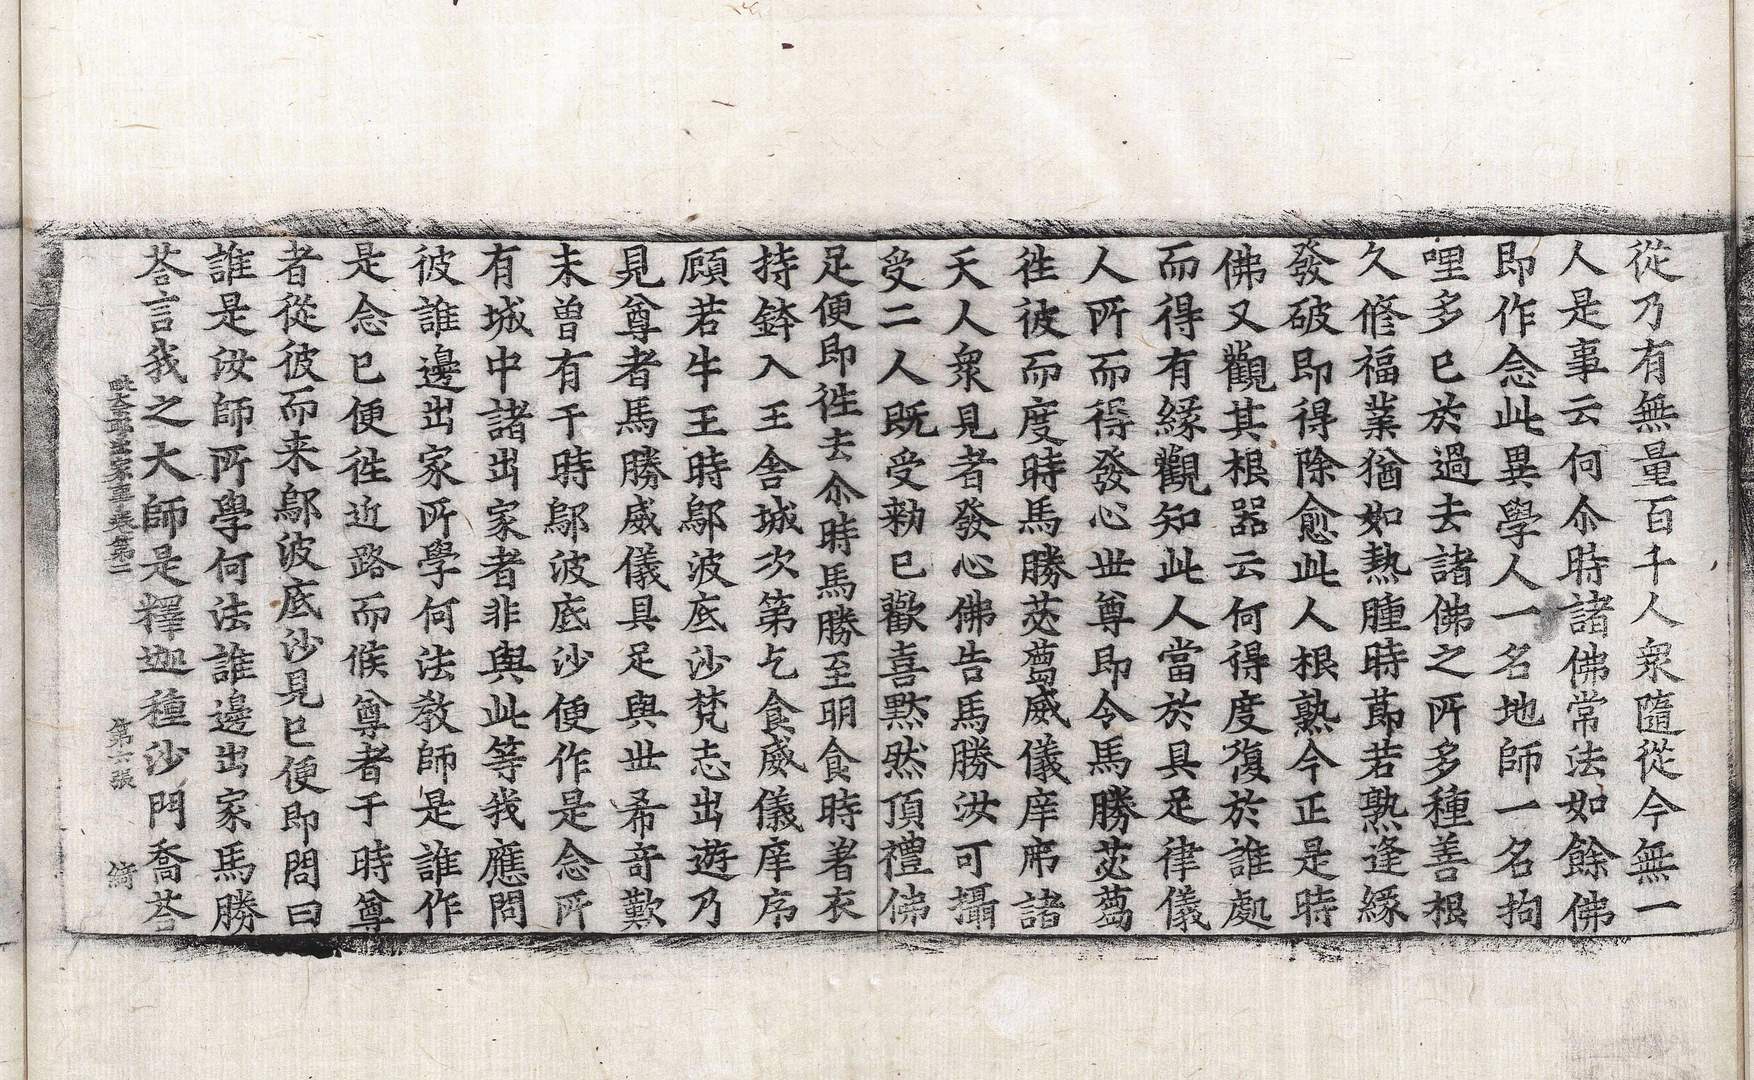 從乃有無量百千人衆隨從今無一
人是事云何尒時諸佛常法如餘佛
即作念此異學人一名地師一名拘
哩多已於過去諸佛之所多種善根
久修福業猶如熱腫時莭若熟逢緣
發破即得除愈此人根熟今正是時
佛又觀其根器云何得度復於誰處
而得有緣觀知此人當於具足律儀
人所而得發心世尊即令馬勝苾蒭
徃彼而度時馬勝苾蒭威儀庠序諸
天人衆見者發心佛告馬勝汝可攝
受二人既受勑已歡喜默然頂禮佛
足便即徃去尒時馬勝至明食時著衣
持鉢入王舍城次第乞食威儀庠序
顧若牛王時鄔波底沙梵志出遊乃
見尊者馬勝威儀具足與世希竒歎
未曾有于時鄔波底沙便作是念所
有城中諸出家者非與此等我應問
彼誰邊出家所學何法教師是誰作
是念已便徃近路而候尊者于時尊
者從彼而来鄔波底沙見已便即問曰
誰是汝師所學何法誰邊出家馬勝
荅言我之大師是釋迦種沙門喬荅
出家事卷第二 第六張 綺